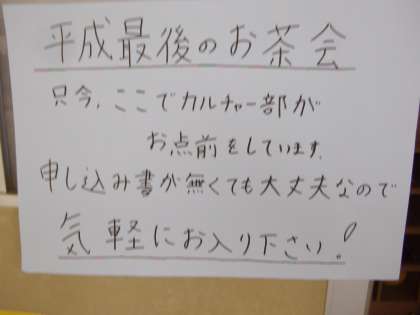 平成最後のお茶会
只今、ここでカルチャー部が
お点前をしています。
申し込み書が無くても大丈夫なので
気軽にお入り下さい!